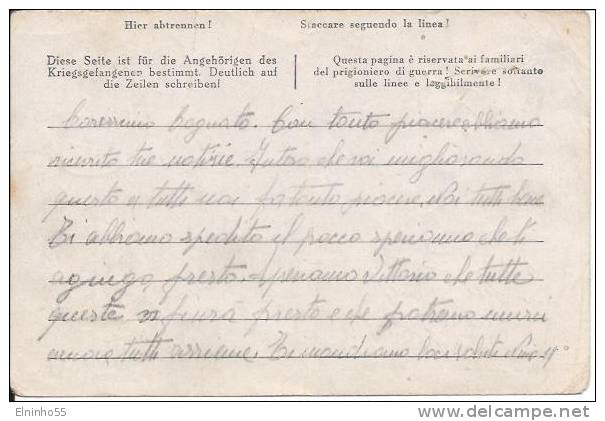 Hier abtrennen!
Staccare seguendo la linea!
Diese Seite ist für die Angehörigen des
Kriegsgefangenen bestimmt. Deutlich auf
die Zeilen schreiben!
Questa pagina è riservata ai familiari
del prigioniero di guerra! Scrivere soltanto
sulle linee e leggibilmente!
Carissimo Cognato. Con tanto piacere abbiamo
ricevuto tue notizie. che vai migliorando
questo a tutti noi fa tanto piacere, Noi tutti bene
Ti abbiamo spedito il pacco speriamo che ti
presto. Speriamo Vittorio che tutte
queste presto e che
tutti assieme. Ti mandiamo
Elninho55
www.delcampe.net